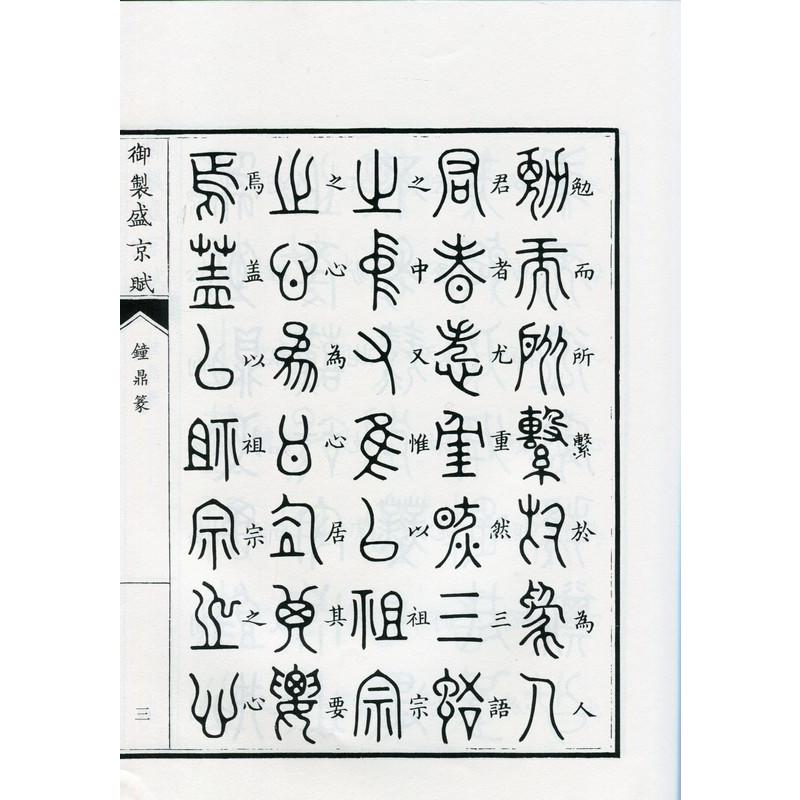 勉而所繫於為人
君者尤重然三語
之中又惟以祖宗
之心為心居其要
焉盖以祖宗之心
御製盛京賦
鐘鼎篆
三